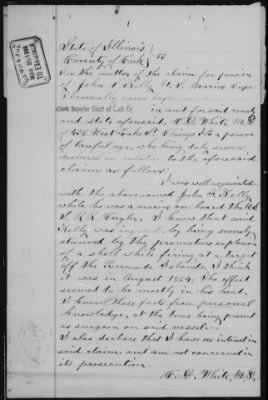 State of Illinois
County of Cook SS
In the matter of the claim for pension
of John Kelly U.S. Marine Corps
Personally came before me a
Clerk Superior Court of Cook Co. in and for said county
and state aforesaid, C. D. White M.D.
of 436 West Lake St Chicago Ills a person
of lawful age, who being duly sworn
declares in relation to the aforesaid
claim as follows:
I was well acquainted
with the abovenamed John Kelly
while he was a marine on board the U.
S. I know that said
Kelly was injured by being severely
stunned by the premature explosion
of a shell while firing at a target
off the Bermuda Islands, I think
it was in August 1864; the effect
seemed to be mostly in his head.
I know these facts from personal
knowledge, at the time being present
as surgeon on said vessel.
I also declare that I have no interest in
said claim and am not concerned in
its prosecution.
C. D. White, M.D.